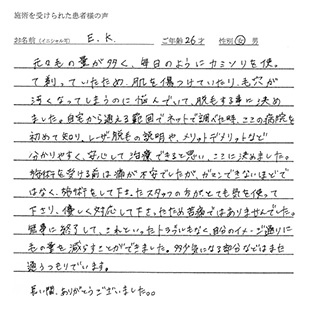 施術を受けられた患者様の声
お名前（イニシャル可） E.K. ご年齢26才 性別 女 男
元々毛の量が多く、毎日のようにカミソリを使っ
て剃っていたため、肌を傷つけていたり、毛穴が
汚くなってしまうのに悩んでいて、脱毛する事に決め
ました。自宅から通える範囲でネットで調べた時、ここの病院を
初めて知り、レーザー脱毛の説明や、メリットデメリットなど
分かりやすく、安心して治療できると思い、ここに決めました。
施術を受ける前は痛みが不安でしたが、ガマンできないほどで
はなく、施術をして下さったスタッフの方がとても気を使って
下さり、優しく対応して下さったため苦痛ではありませんでした。
無事に終了して、これといったトラブルもなく、自分のイメージ通りに
毛の量を減らすことができました。又気になる部分などはまた
通うつもりでいます。
長い間、ありがとうございました。